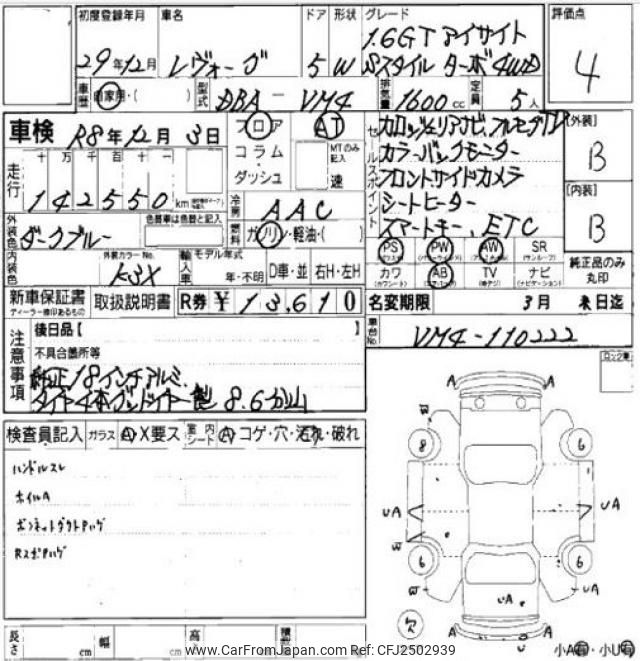 初度登録年月 車名 ドア 形状 グレード 評価点
29年12月 レヴォーグ 5 W 1.6GT アイサイト
Sスタイル ターボ4WD 4
車歴 自家用・( ) 型式 DBA-VM4 排気量 1600cc 定員 5人
車検 R8年12月3日 フロア AT セールスポイント カロッツェリアナビ、フルセグTV [外装]
コラム MTのみ記入 カラーバックモニター B
走行 十万千百十一 ダッシュ 速 フロントサイドカメラ
142550km 冷房 AAC シートヒーター [内装]
外装色 色替車は色替と記入 スマートキー、ETC B
ダークブルー 燃料 ガソリン・軽油・( )
内装色 外装カラーNo. 輸入車 モデル年式 PS PW AW SR
K3X 年・不明 D車・並 右H・左H カワ AB TV ナビ 純正品のみ丸印
新車保証書 取扱説明書 R券 ¥13,610 名変期限 3月 末日迄
ディーラー捺印あるもの
注意事項 後日品【 】 車台No. VM4-110222
不具合箇所等
純正18インチアルミ
タイヤ4本グッドイヤー製 8.6分山
検査員記入 ガラス A・X要ス 室内シート A・コゲ・穴・汚れ・破れ
ハンドルスレ
ホイルA
ボンネットダクトPハゲ
RスポPハゲ
A A
W
8 6
UA UA
W
6 6
W UA
UA
A A
長さ cm 幅 cm 高 積
小A 小U
www.CarFromJapan.com Ref: CFJ2502939